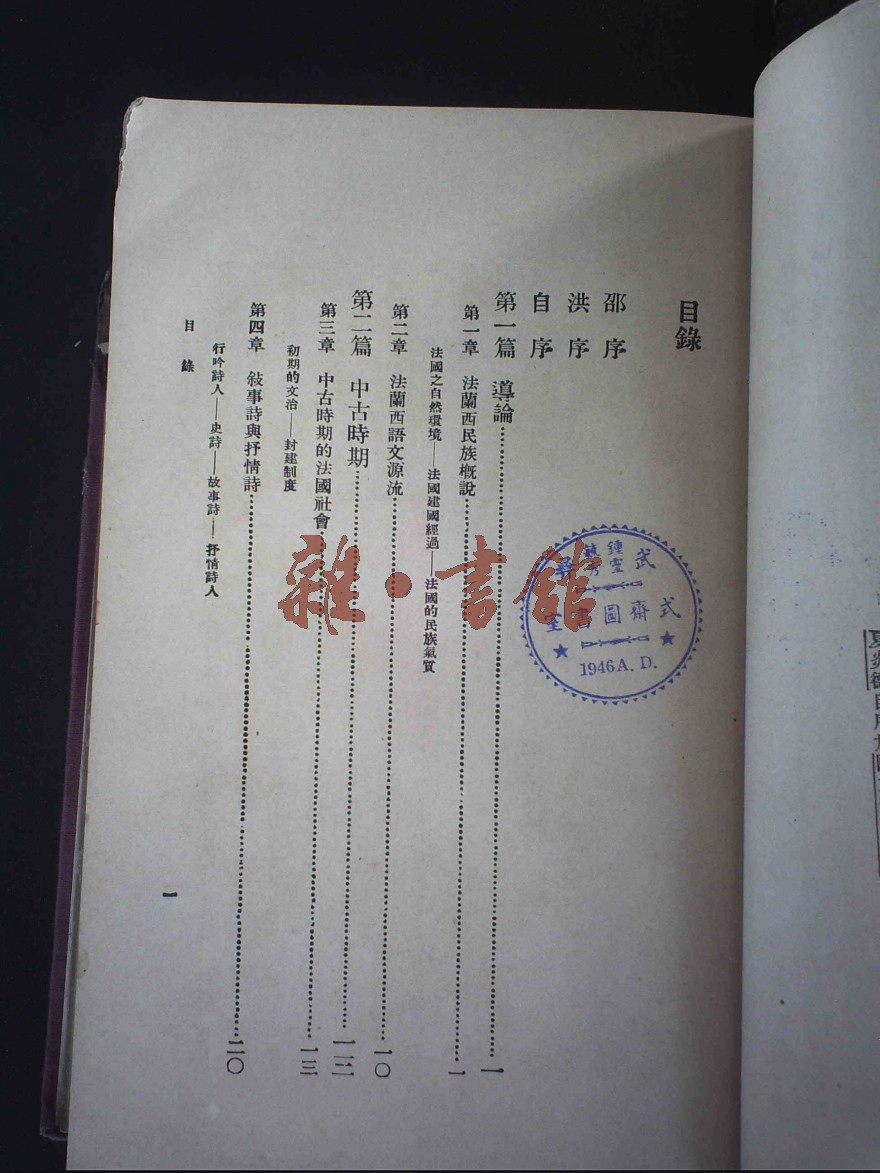 目錄
邵序
洪序
自序
第一篇 導論……一
第一章 法蘭西民族概說……一
法國之自然環境——法國建國經過——法國的民族氣質
第二章 法蘭西語文源流……一〇
第二篇 中古時期……一三
第三章 中古時期的法國社會……一三
初期的文治——封建制度
第四章 敍事詩與抒情詩……二〇
行吟詩人——史詩——故事詩——抒情詩人
目錄
一
武
式齋圖書室
1946A.D.
雜·書館